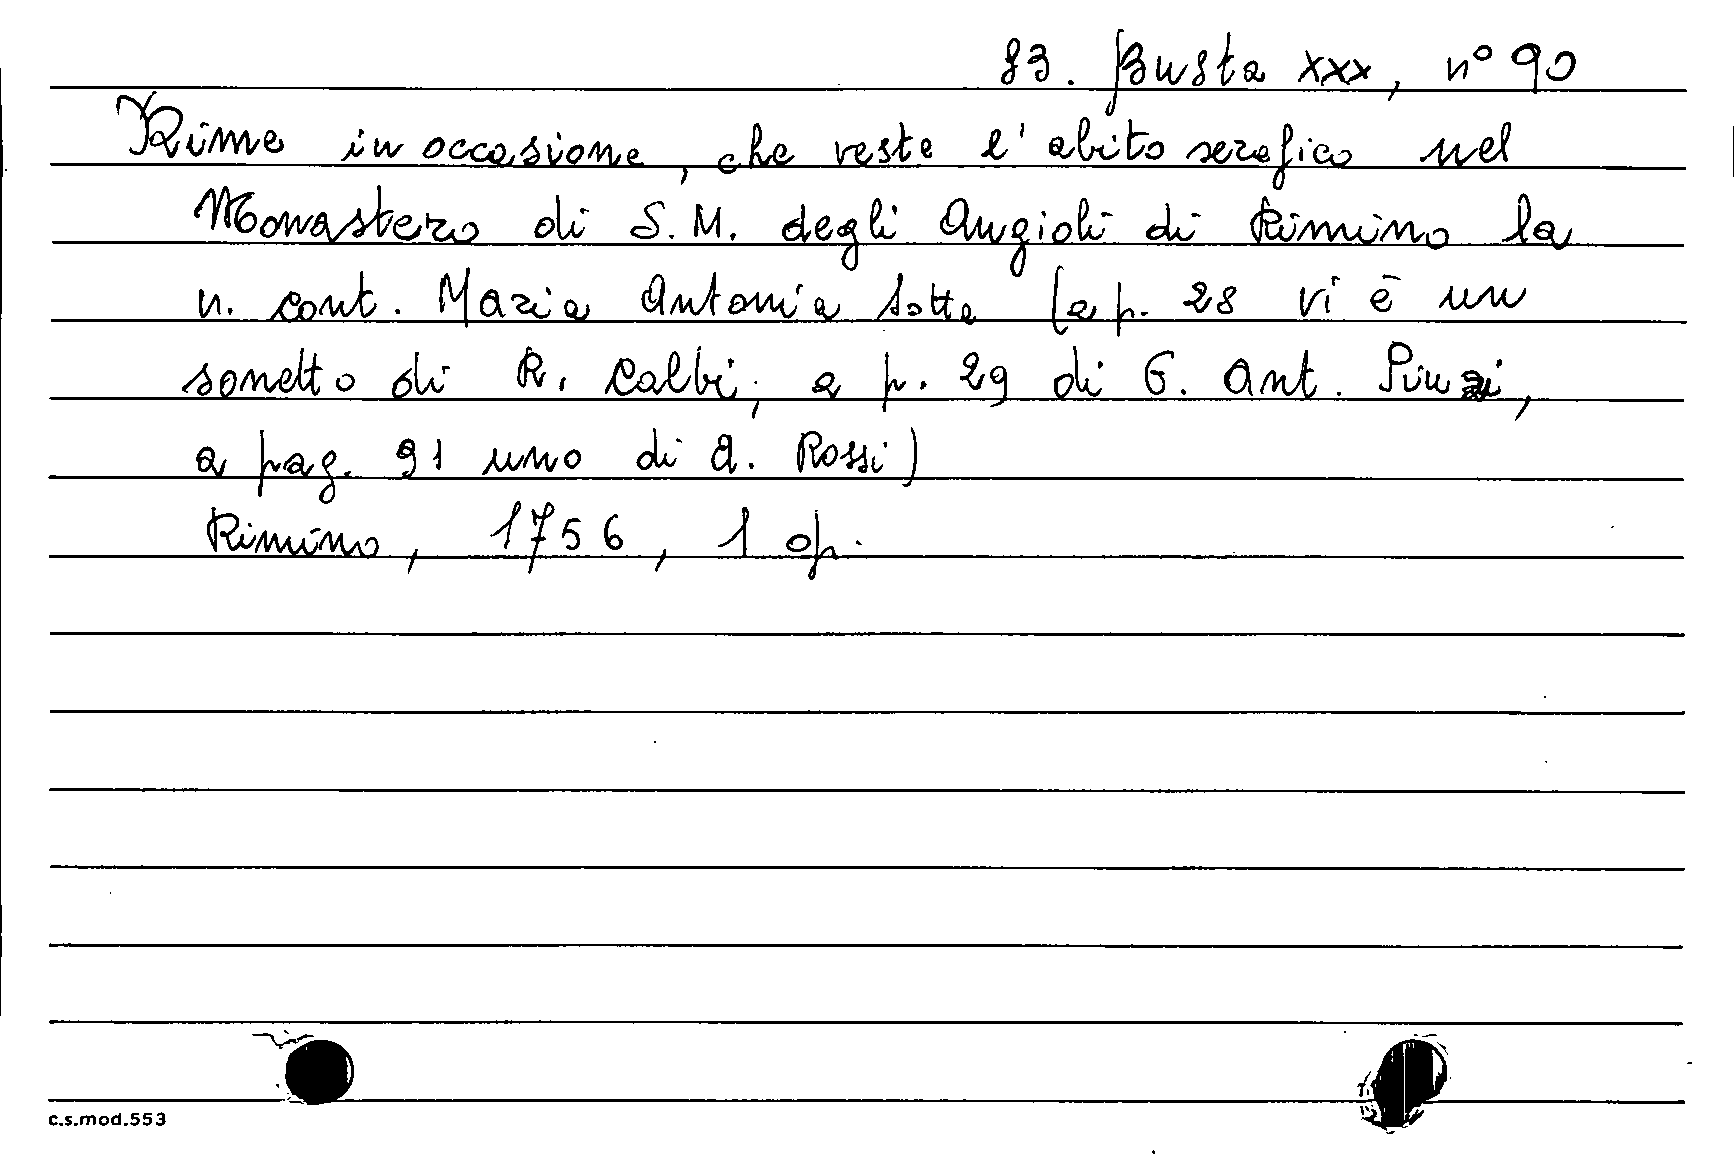 83. Busta XXX, n° 90
Rime in occasione, che veste l'abito serafico nel
Monastero di S. M. degli Angioli di Rimino la
n. cont. Maria Antonia Sotta (a p. 28 vi è un
sonetto di R. Calbi; a p. 29 di G. Ant.
a pag. 91 uno di A. Rossi)
Rimino, 1756, 1 op.
c.s.mod.553